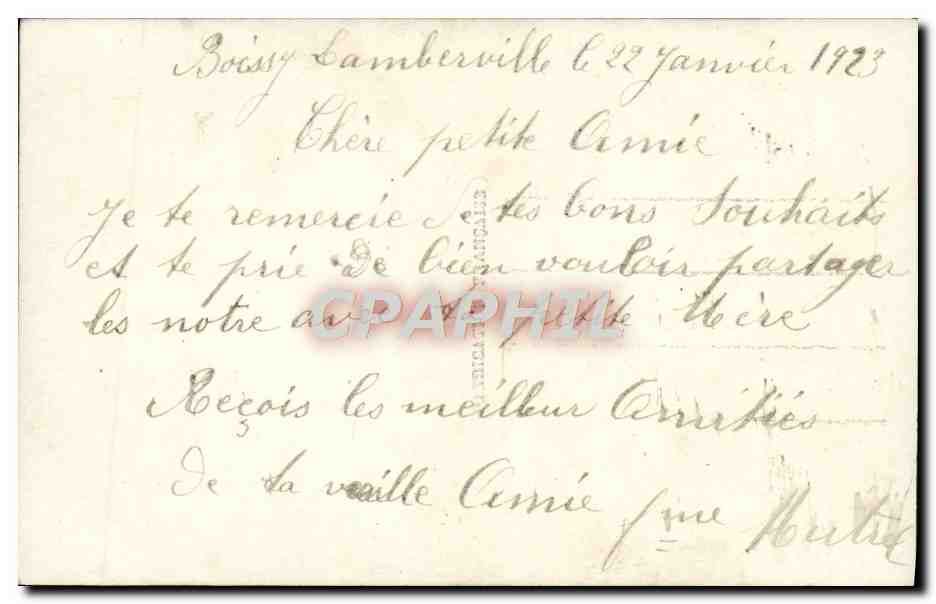 Boissy Lamberville le 22 Janvier 1923
Chère petite Amie
Je te remercie de tes bons Souhaits
et te prie de bien vouloir partager
les notre avec ta petite Mère
Reçois les meilleur Amitiés
de ta vieille Amie
fme
FABRICATION FRANÇAISE
CPAPHIL